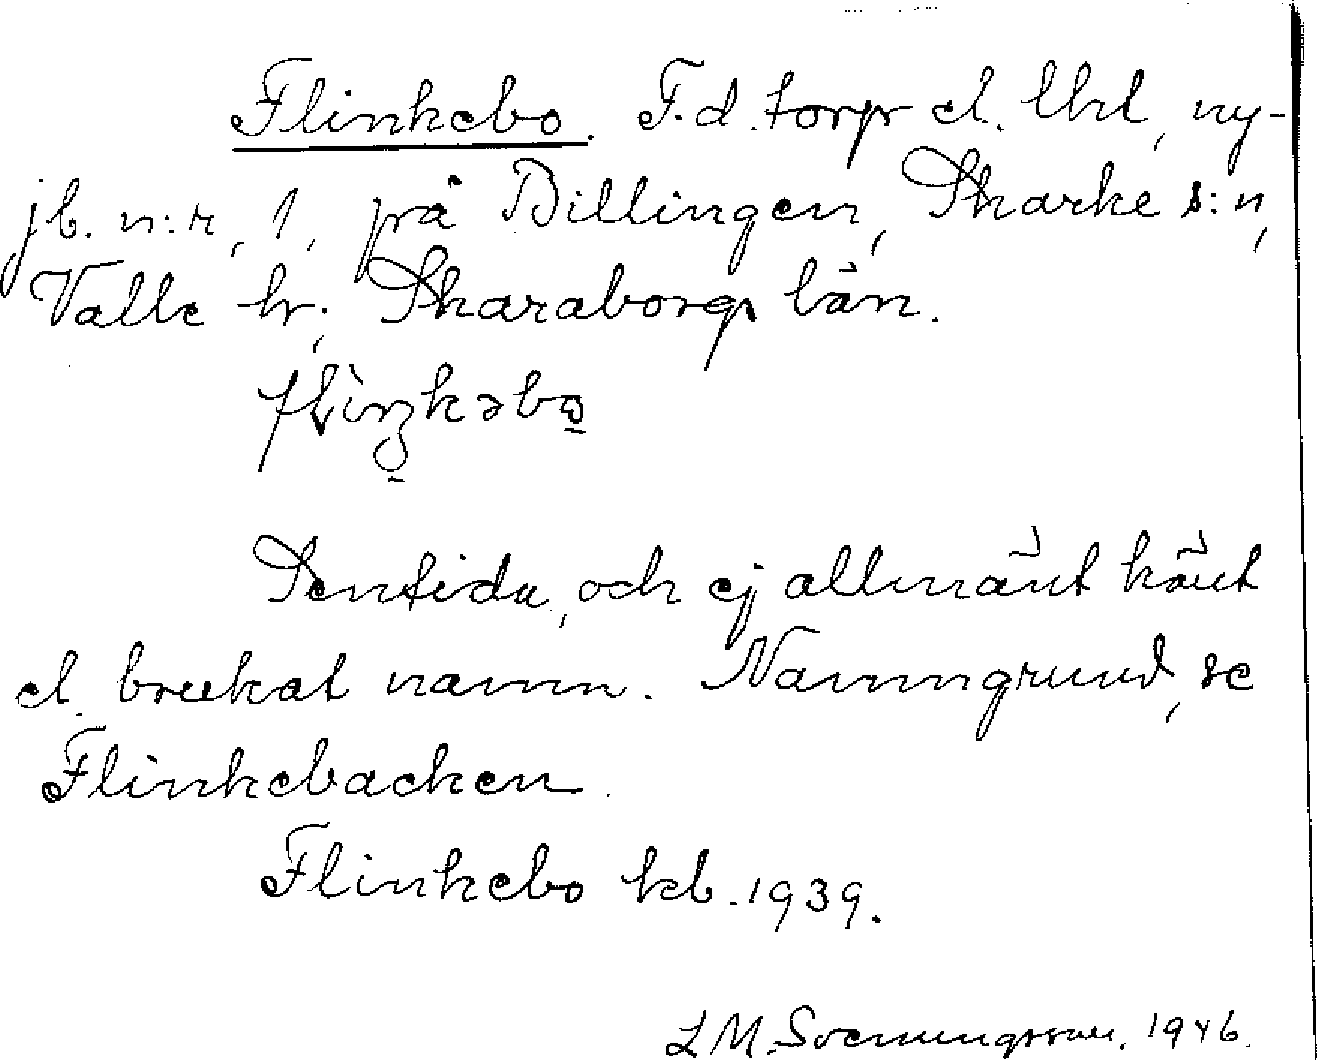 Flinkebo. F.d. torp el. lht, ny-
jb. n:r, 1, på Billingen, Skarke s:n,
Valle hr, Skaraborgs län.
Sentida, och ej allmänt känt
el. brukat namn. Namngrund, se
Flinkebacken.
Flinkebo kb. 1939.
L M. Svenungsson. 1946.